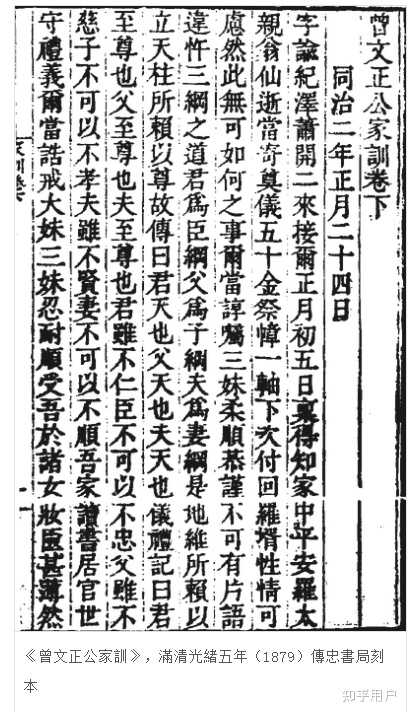 曾文正公家訓卷下
同治二年正月二十四日
字諭紀澤蕭開二來接爾正月初五日稟得知家中平安羅太
親翁仙逝當寄奠儀五十金祭幛一軸下次付回羅壻性情可
慮然此無可如何之事爾當諄囑三妹柔順恭謹不可有片語
違忤三綱之道君爲臣綱父爲子綱夫爲妻綱是地維所賴以
立天柱所賴以尊故傳曰君天也父天也夫天也儀禮記曰君
至尊也父至尊也夫至尊也君雖不仁臣不可以不忠父雖不
慈子不可以不孝夫雖不賢妻不可以不順吾家讀書居官世
守禮義爾當誥戒大妹三妹忍耐順受吾於諸女妝匳甚薄然
《曾文正公家訓》，滿清光緒五年（1879）傳忠書局刻
本
知乎用户